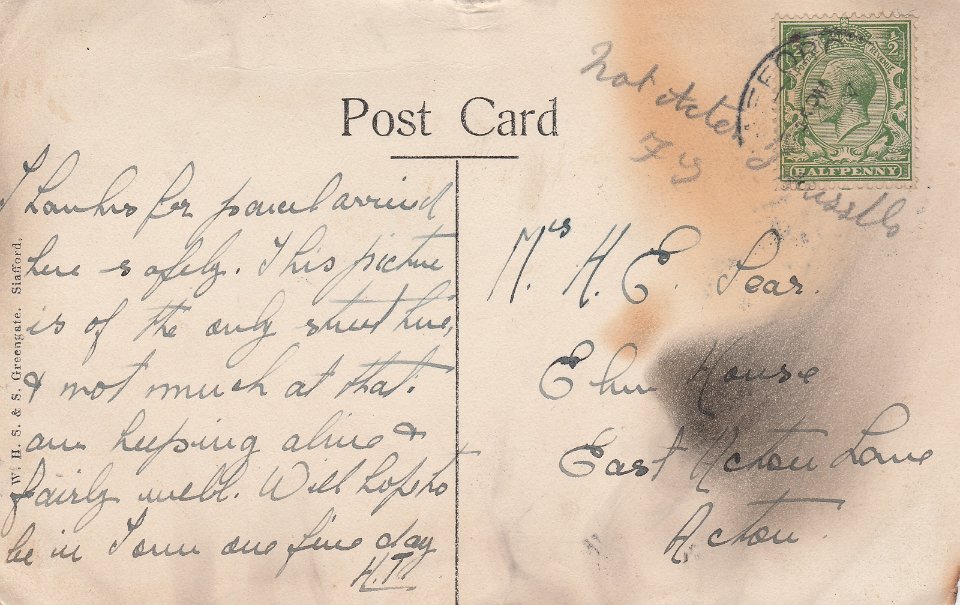 Post Card
Thanks for parcel arrived
here safely. This picture
is of the only street here,
& not much at that.
am keeping alive &
fairly well. Will hope to
be in Town one fine day
H.T.
W. H. S. & S. Greengate. Stafford.
Not Acton
Mrs H. E. Pear.
Elm House
East Acton Lane
Acton
1/2
HALFPENNY